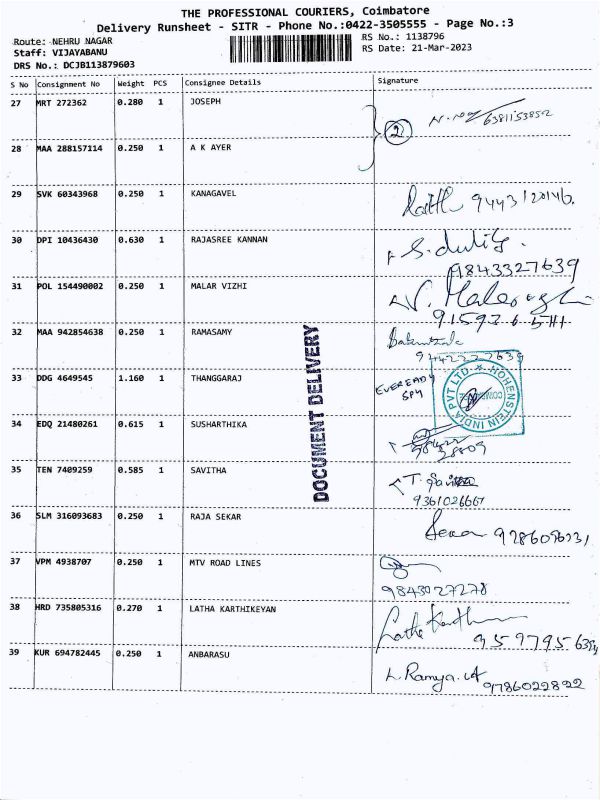 THE PROFESSIONAL COURIERS, Coimbatore
Delivery Runsheet - SITR - Phone No.:0422-3505555 - Page No.:3
Route: NEHRU NAGAR
Staff: VIJAYABANU
DRS No.: DCJB113879603
RS No.: 1138796
RS Date: 21-Mar-2023
S No Consignment No Weight PCS Consignee Details Signature
27 MRT 272362 0.280 1 JOSEPH
2 6381153852
28 MAA 288157114 0.250 1 A K AYER
29 SVK 60343968 0.250 1 KANAGAVEL
9443120146.
30 DPI 10436430 0.630 1 RAJASREE KANNAN
9843327639
31 POL 154490002 0.250 1 MALAR VIZHI
32 MAA 942854638 0.250 1 RAMASAMY
33 DDG 4649545 1.160 1 THANGGARAJ
EVEREADY
SPM
HOHENSTEIN INDIA PVT LTD
DOCUMENT DELIVERY
34 EDQ 21480261 0.615 1 SUSHARTHIKA
35 TEN 7409259 0.585 1 SAVITHA
9361026661
36 SLM 316093683 0.250 1 RAJA SEKAR
37 VPM 4938707 0.250 1 MTV ROAD LINES
9843027278
38 HRD 735805316 0.270 1 LATHA KARTHIKEYAN
39 KUR 694782445 0.250 1 ANBARASU
L. Ramya 9786022822